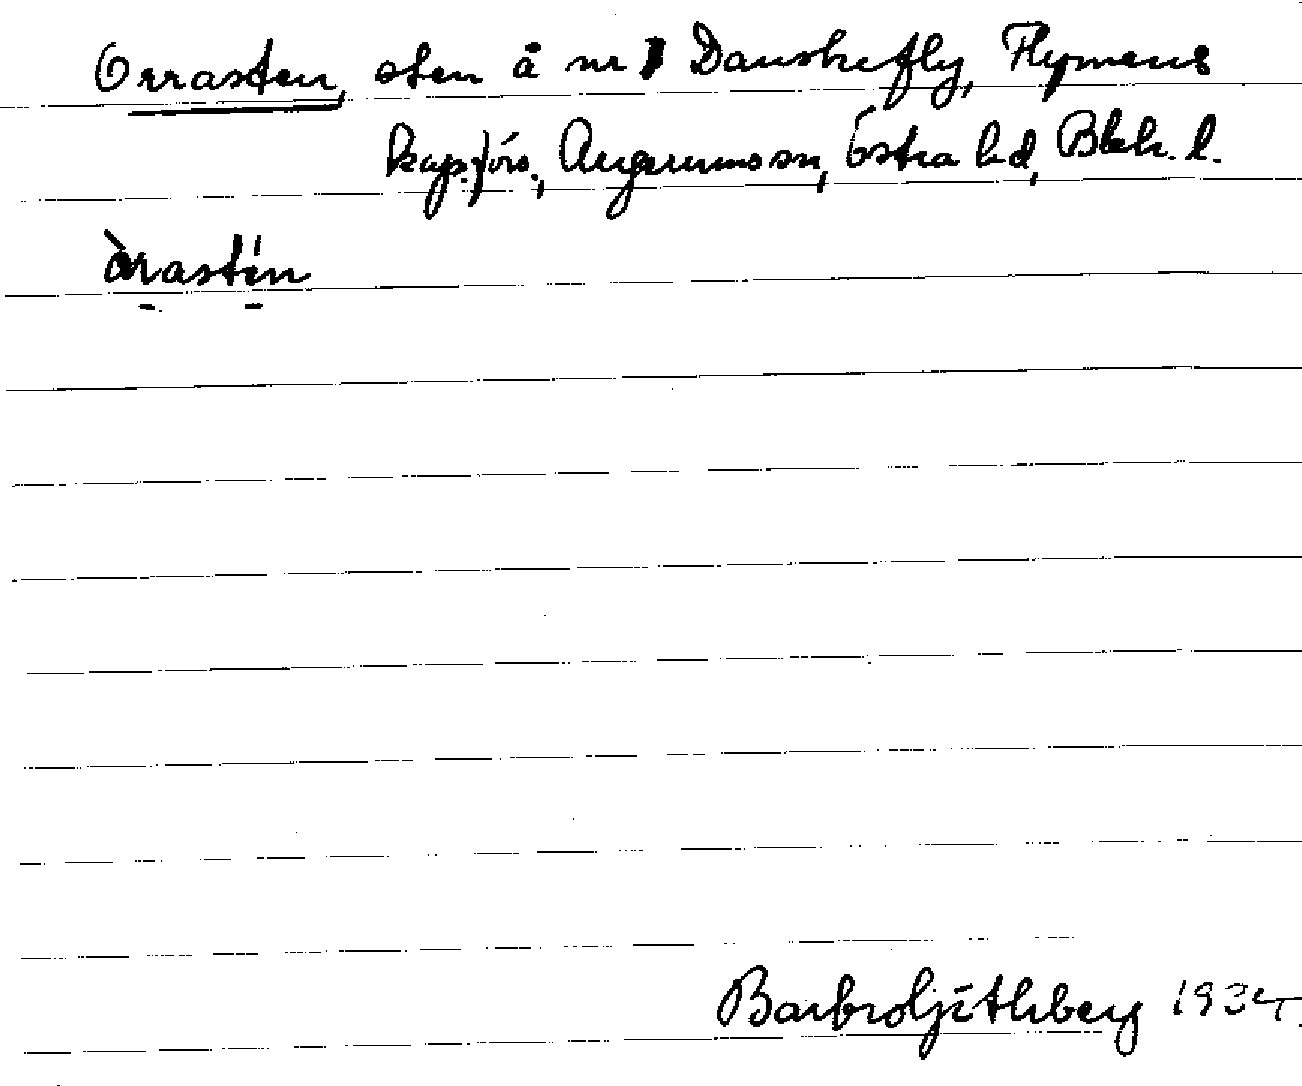 Orrasten, sten å nr 1 Danskefly, Flymens
kap.förs., Augerums sn, Östra hd, Blek. l.
òrastén
Barbro Ljithberg 1934.